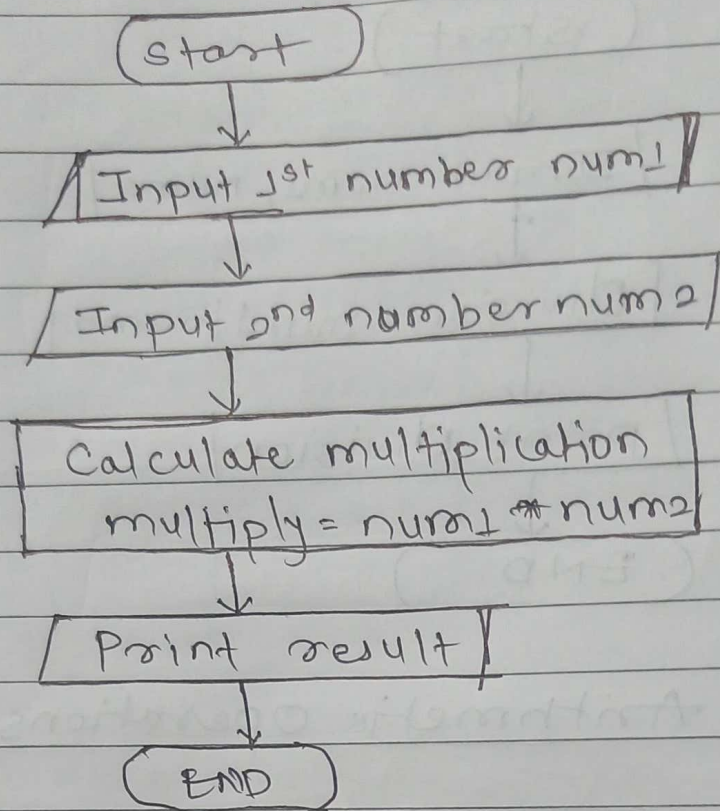 Start
Input 1st number num1
Input 2nd number num2
Calculate multiplication
multiply = num1 * num2
Print result
END